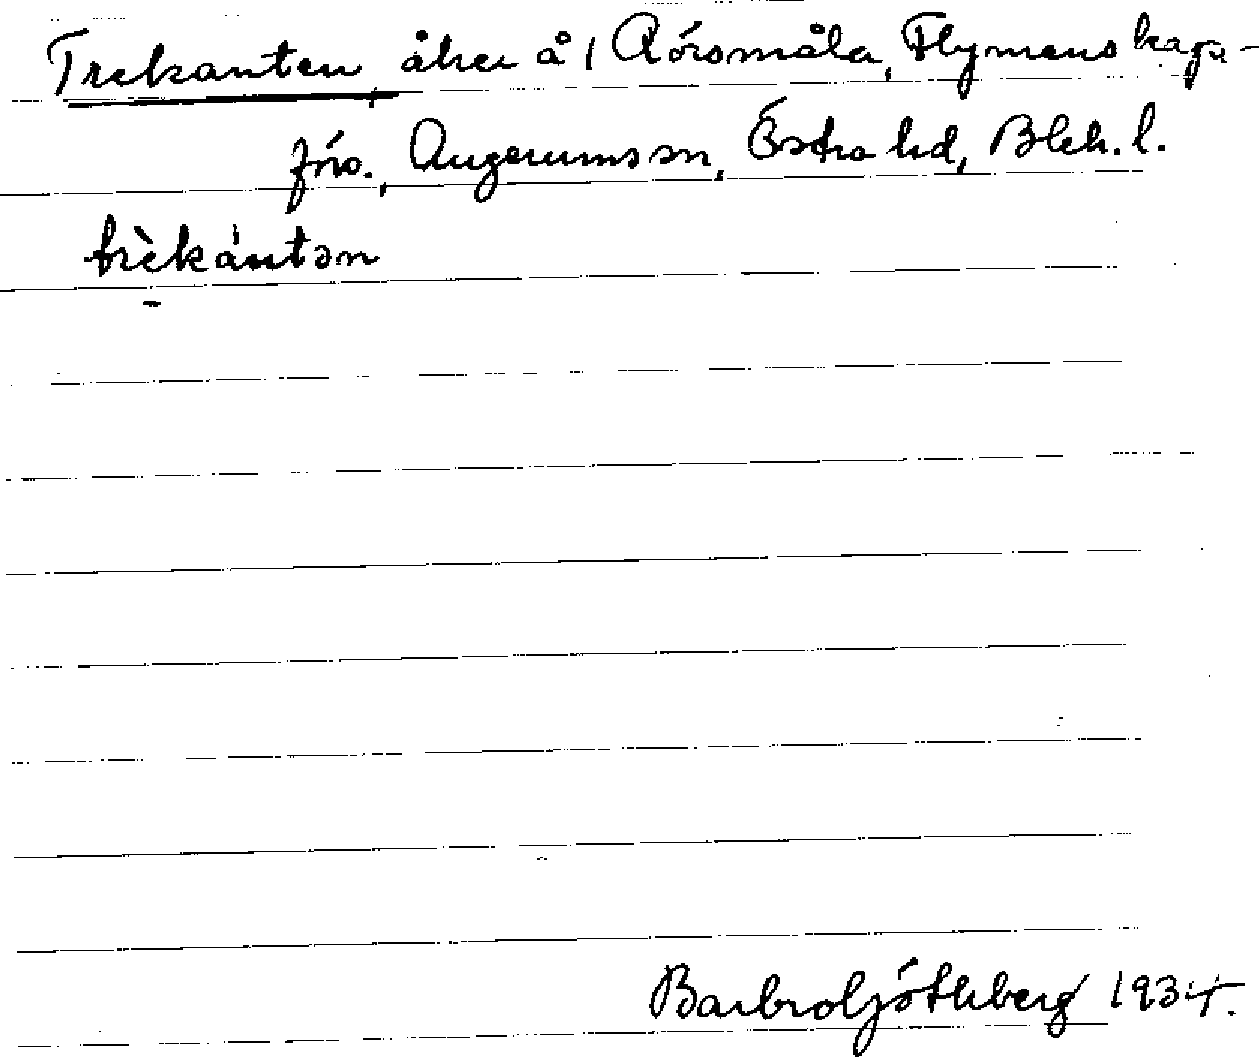 Trekanten åker å 1 Rörsmåla, Flymens kapa-
förs., Augerums sn, Östra hd, Blek. l.
trèkántən
Barbro Götheberg 1934.